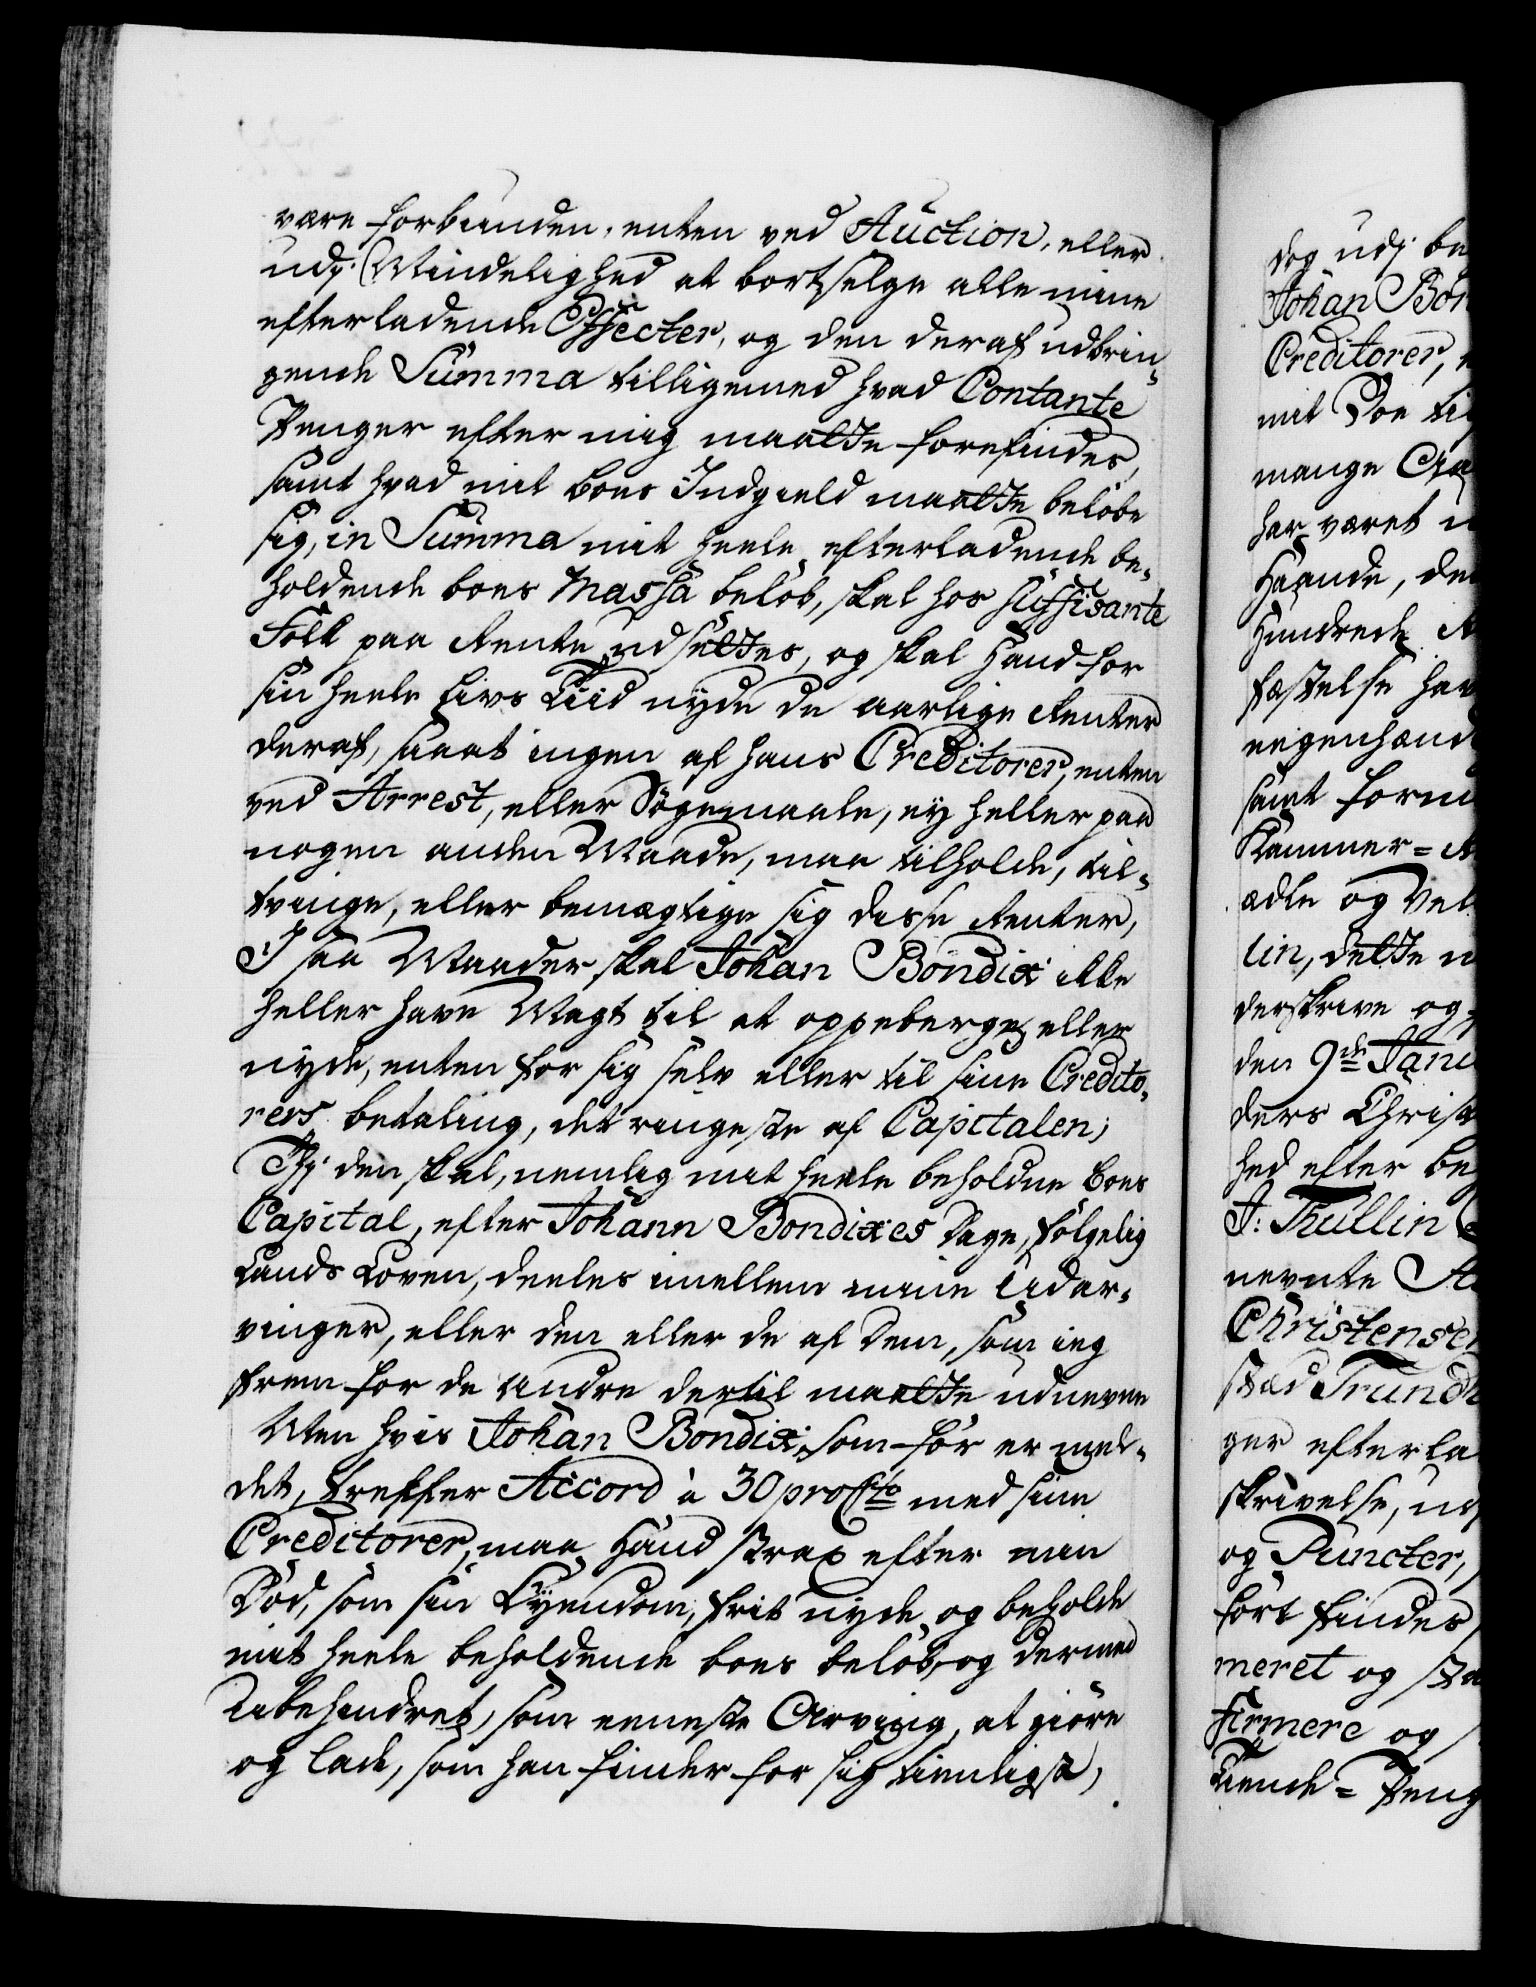 være forbunden, enten ved Auction, eller
udj Mindelighed at bortselge alle mine
efterladende Effecter, og den deraf udbrin-
gende Summa tilligemed hvad Contante
Penger efter mig maatte forefindes,
samt hvad mit boes Indgield maatte beløbe
sig, in Summa mit heele efterladende be-
holdende boes Massa beløb, skal hos suffisante
Folk paa Rente udsættes, og skal Hand for
sin heele Livs Tiid nyde de aarlige Renter
deraf, saaat ingen af hans Creditorer, enten
ved Arrest, eller Søgemaale, ey heller paa
nogen anden Maade, maa tilholde, til-
tvinge, eller bemægtige sig disse Renter,
I saa Maader skal Johan Bondix ikke
heller have Magt til at oppeberge eller
nyde, enten for sig selv eller til sine Credito-
rers betaling, det ringeste af Capitalen;
Thj den skal, nemlig mit heele beholdne boes
Capital, efter Johann Bondixes Dage, følgelig
Lands Loven, deeles imellem mine Udar-
vinger, eller den eller de af Dem, som ieg
frem for de andre dertil maatte udnevne
Men hvis Johan Bondix, som før er mel-
det, treffer Accord à 30 pro Cto med sine
Creditorer, maa Hand strax efter min
Død, som sin Eyendom, frit nyde og beholde
mit heele beholdende boes beløb, og dermed
Ubehindret, som eeneste Arving, at giøre
og lade, som han finder for sig tienligst,
dog udj be
Johan Bon
Creditorer,
mit Boe til
mange
har været
Haande, den
Hundrede
fæstelse hav
eegenhænd
samt form
Kammer-
ædle og Vel
lin, dette
derskrive og
den 9de Janu
ders Christ
hed efter be
J: Tullin
nevnte
Christensen
stæd Trundh
ger efterla
skrivelse, ud
og Puncter,
ført findes
meret og sta
firmere og
Tiende-Peng